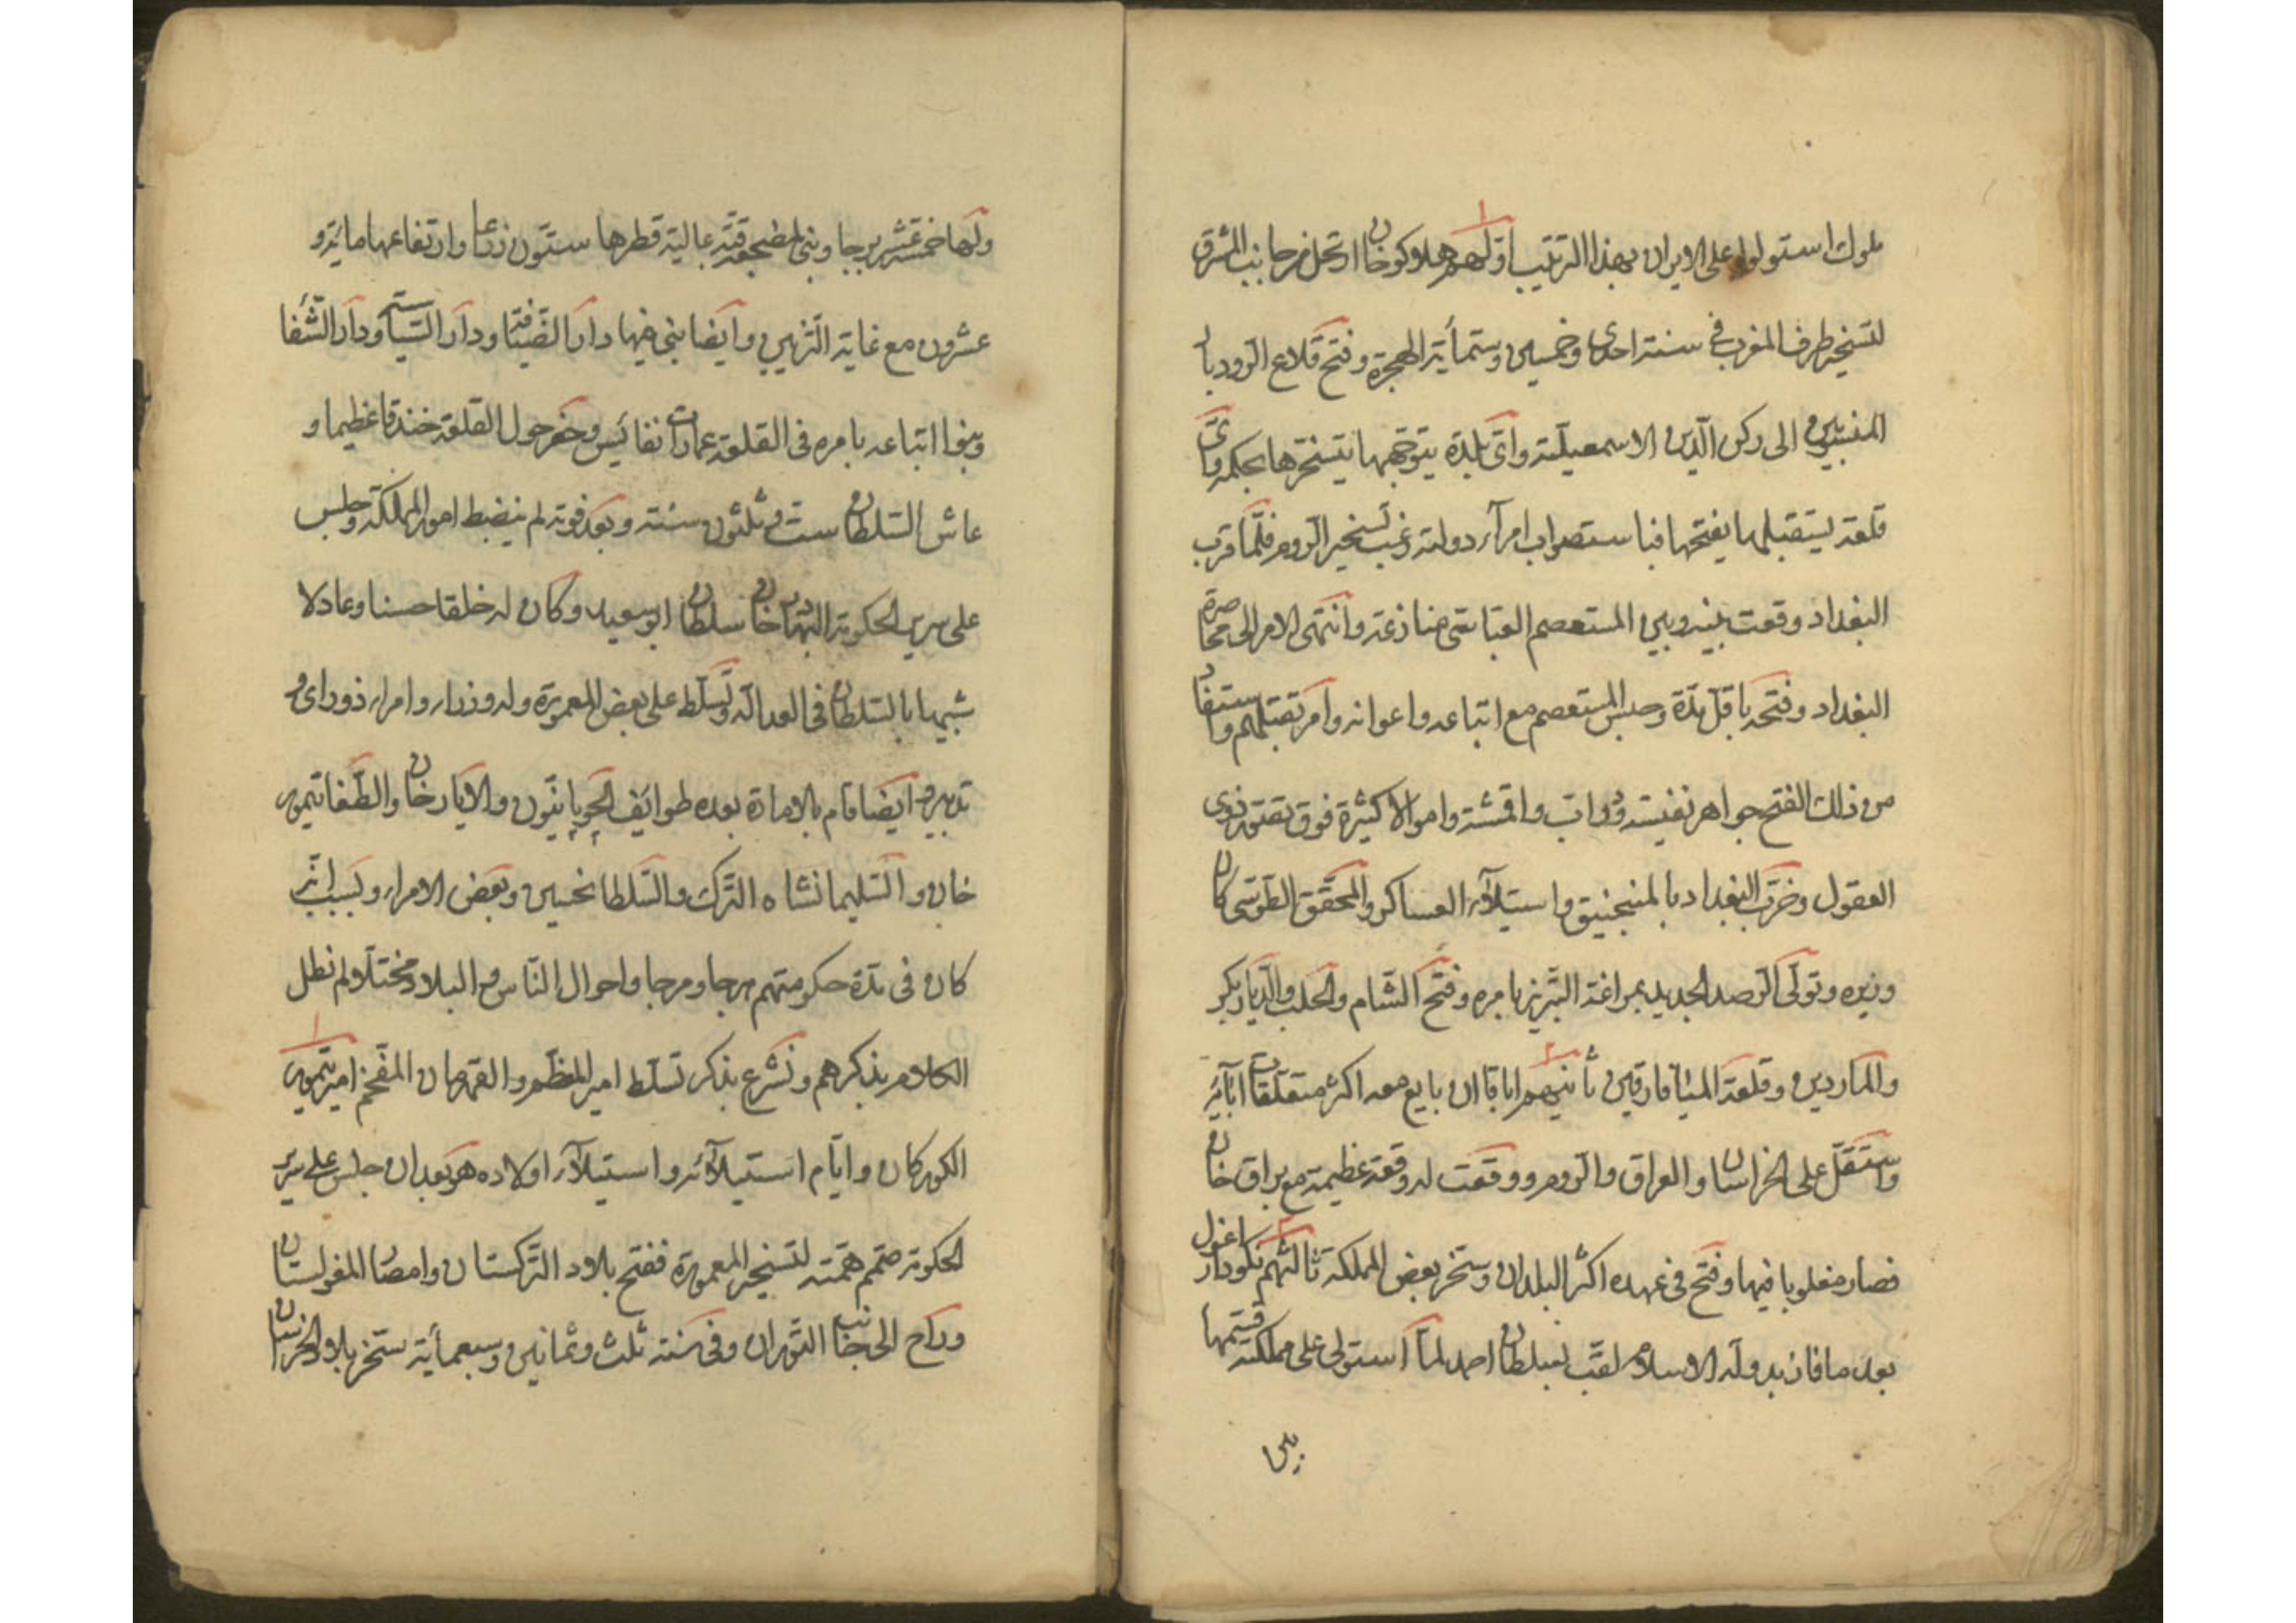 ملوك استولوا على الايران بهذا الترتيب اوّلهم هلاوكوخان ارتحل من جانب المشرق
لتسخير طرف المغرب فى سنة احدى وخمسين وستمأية الهجرة وفتح قلاع الرودبار
المنسوبين الى ركن الدّين الاسمعيليّة واىّ بلدة يتوجّهها يتسخّرها بحكمه واىّ
قلعة يستقبلها يفتحها فباستصواب امرآء دولته رغب تسخير الروم فلمّا قرب
البغداد وقعت بينه وبين المستعصم العبّاسى منازعة وانتهى الامر الى محاصرة
البغداد وفتحه باقلّ مدّة وحبس المستعصم مع اتباعه واعوانه وامر بقتلهم واستفاد
من ذلك الفتح جواهر نفيسة ودوابّ واقمشة واموالا كثيرة فوق تعقّد ذوى
العقول وخرّب البغداد بالمنجنيق واستيلآء العساكر والمحقّق الطوسى كان
وزيره وتولّى الرصد الجديد بمراغة التبريز بامره وفتح الشام والحلب والديار بكر
والماردين وقلعة الميافارقين ثانيهم اباقاان بايع معه اكثر متعلّقات ابائه
واستقلّ على الخراسان والعراق والروم ووقعت له وقعة عظيمة مع براق خان
فصار مغلوبا فيها وفتح فى عهده اكثر البلدان وسخر بعض المملكة ثالثهم نكودار اغول
بعد ما فاز بدولة الاسلام لقّب بسلطان احمد لمّا استولى على مملكته قسمها
بين
ولها خمسة عشر برجا وبنى لمضجعه قبّة عالية قطرها ستّون ذرعا وارتفاعها ماية و
عشرون مع غاية التزيين وايضا بنى فيها دار الضّيافة ودار السّيادة ودار الشّفا
وبنوا اتباعه بامره فى القلعة عمارات نفائس وحفر حول القلعة خندقا عظيما و
عاش السّلطان ست وثلثون سنة وبعد فوته لم ينضبط امور المملكة وجلس
على سرير الحكومة البهادرخان سلطان ابوسعيد وكان له خلقا حسنا وعادلا
شبيها بالسّلطان فى العدالة وتسلّط على بعض المعمورة وله وزراء وامراء ذو راى و
تدبير وايضا قام بالامارة بعده طوايف الچوپانيّون والايلارخان والطّغاتيمور
خان والسّليمانشاه التّرك والسّلطانحسين وبعض الامراء وبسبب انّه
كان فى مدّة حكومتهم هرجا ومرجا واحوال النّاس والبلاد مختلّا ولم نطل
الكلام بذكرهم ونشرع بذكر تسلّط امير المظّم والقهرمان المفخّم امير تيمور
الكوركان وايّام استيلآئه واستيلآء اولاده هو بعد ان جلس على سرير
الحكومة صمّم همّته لتسخير المعمورة ففتح بلاد التّركستان وامصار المغولستان
وراح الى جانب التّوران وفى سنة ثلث وثمانين وسبعمأية سخّر بلاد الخراسان